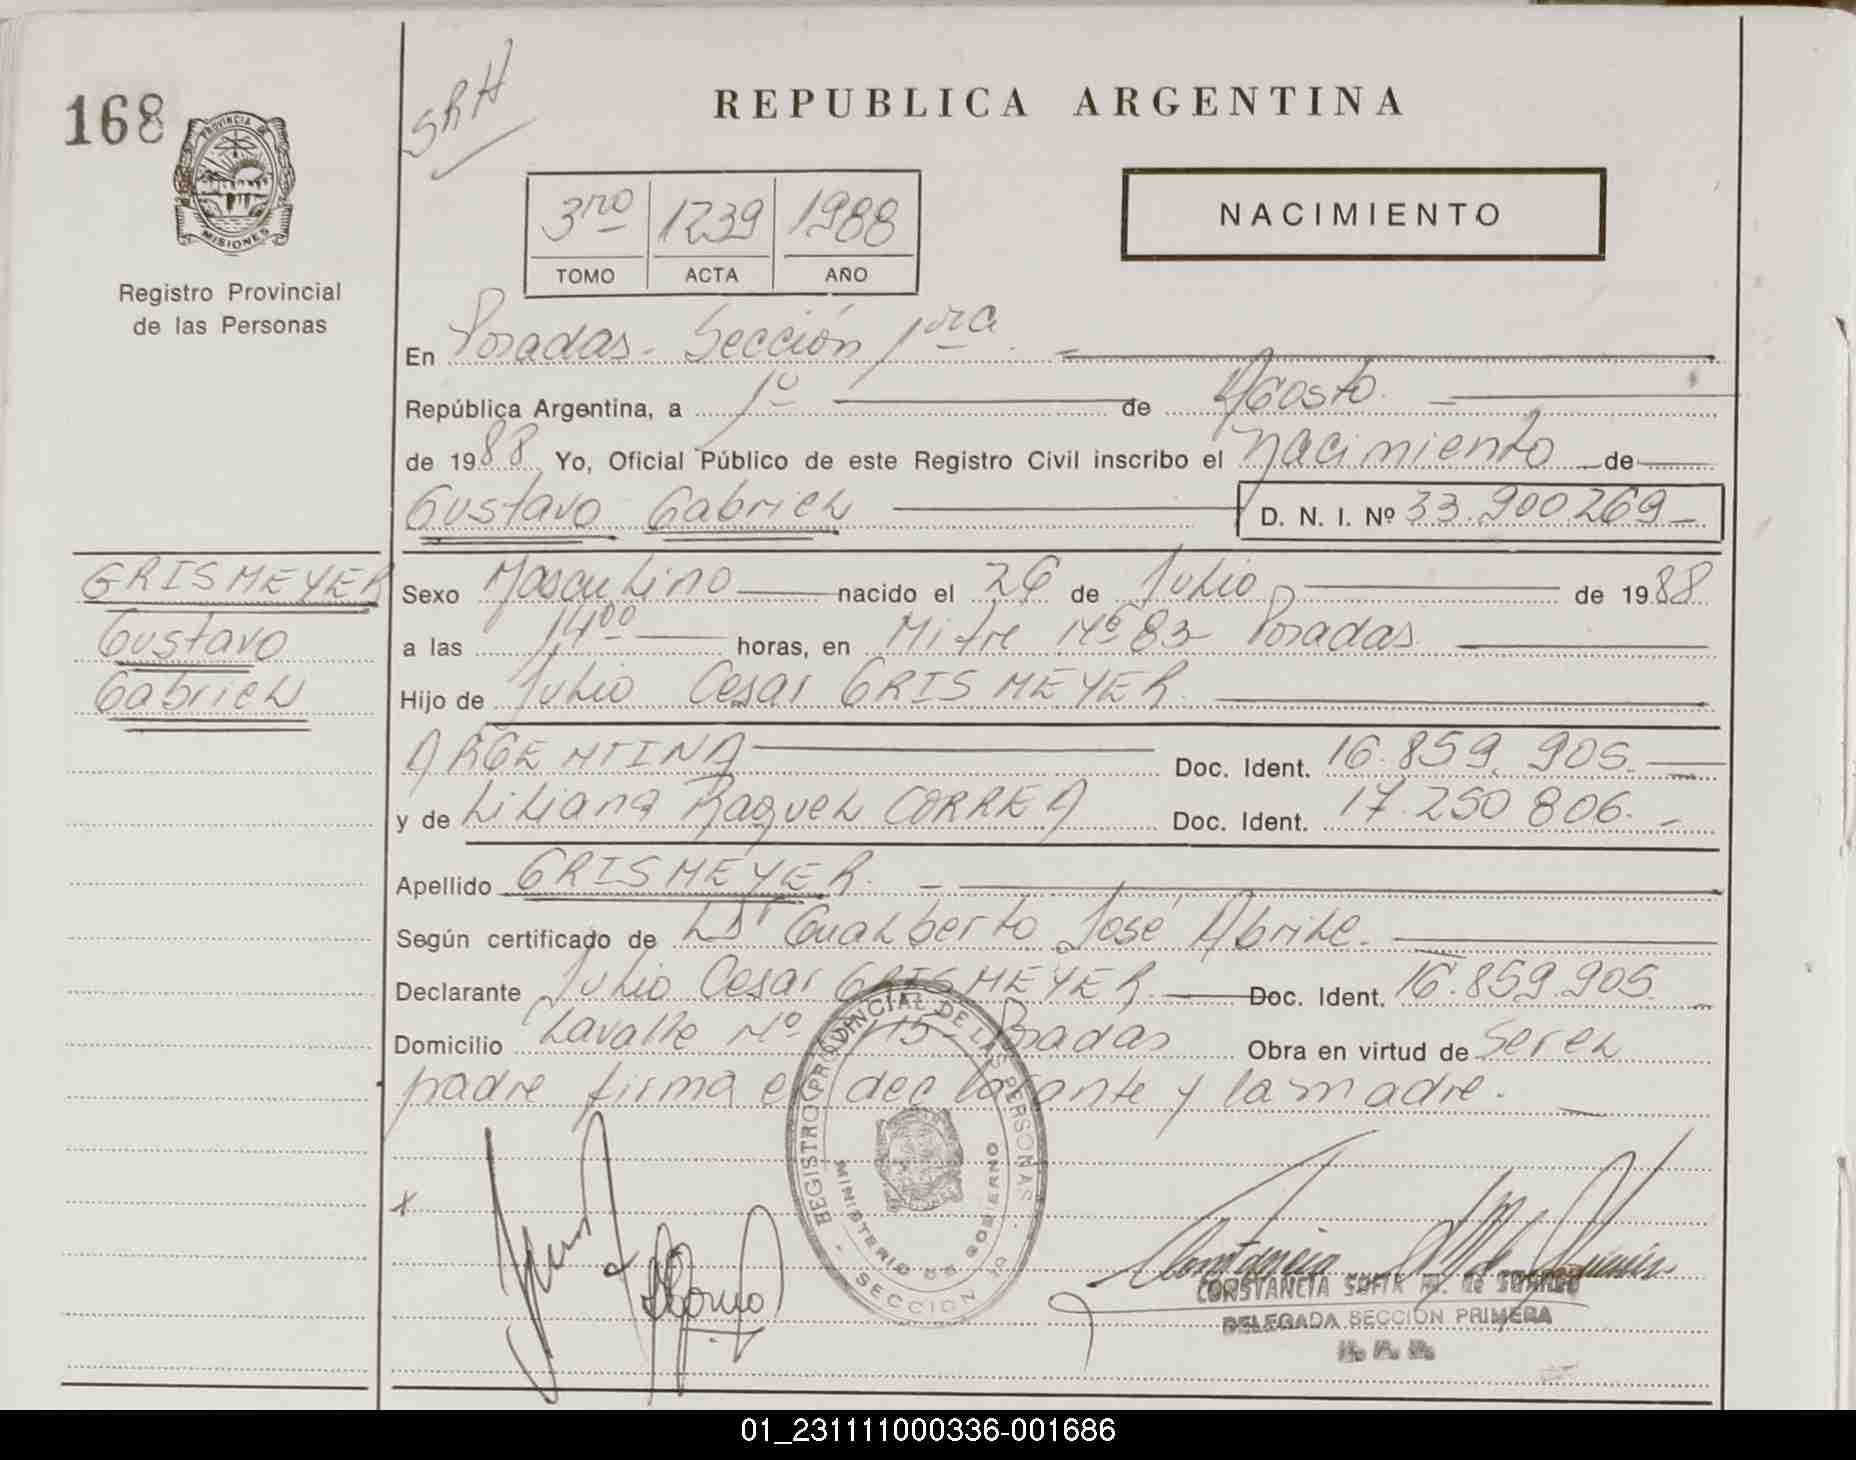 168
PROVINCIA DE
MISIONES
Registro Provincial
de las Personas
SRH
REPUBLICA ARGENTINA
3ro 1239 1988
TOMO ACTA AÑO
NACIMIENTO
En Posadas - Sección 1ra
República Argentina, a 1º de Agosto
de 1988 Yo, Oficial Público de este Registro Civil inscribo el Nacimiento de
Gustavo Gabriel D. N. I. Nº 33.900269
GRISMEYER
Gustavo
Gabriel
Sexo Masculino nacido el 26 de Julio de 1988
a las 1400 horas, en Mitre Nº 83 Posadas
Hijo de Julio Cesar GRISMEYER
ARGENTINA Doc. Ident. 16.859.905
y de Liliana Raquel CORREA Doc. Ident. 17.250 806
Apellido GRISMEYER
Según certificado de Gualberto José Abrile
Declarante Julio Cesar GRISMEYER Doc. Ident. 16.859.905
Domicilio Lavalle Nº Posadas Obra en virtud de Ser el
padre firma el declarante y la madre.
REGISTRO PROVINCIAL DE LAS PERSONAS
MINISTERIO DE GOBIERNO
SECCION
CONSTANCIA
DELEGADA SECCION PRIMERA
01_231111000336-001686